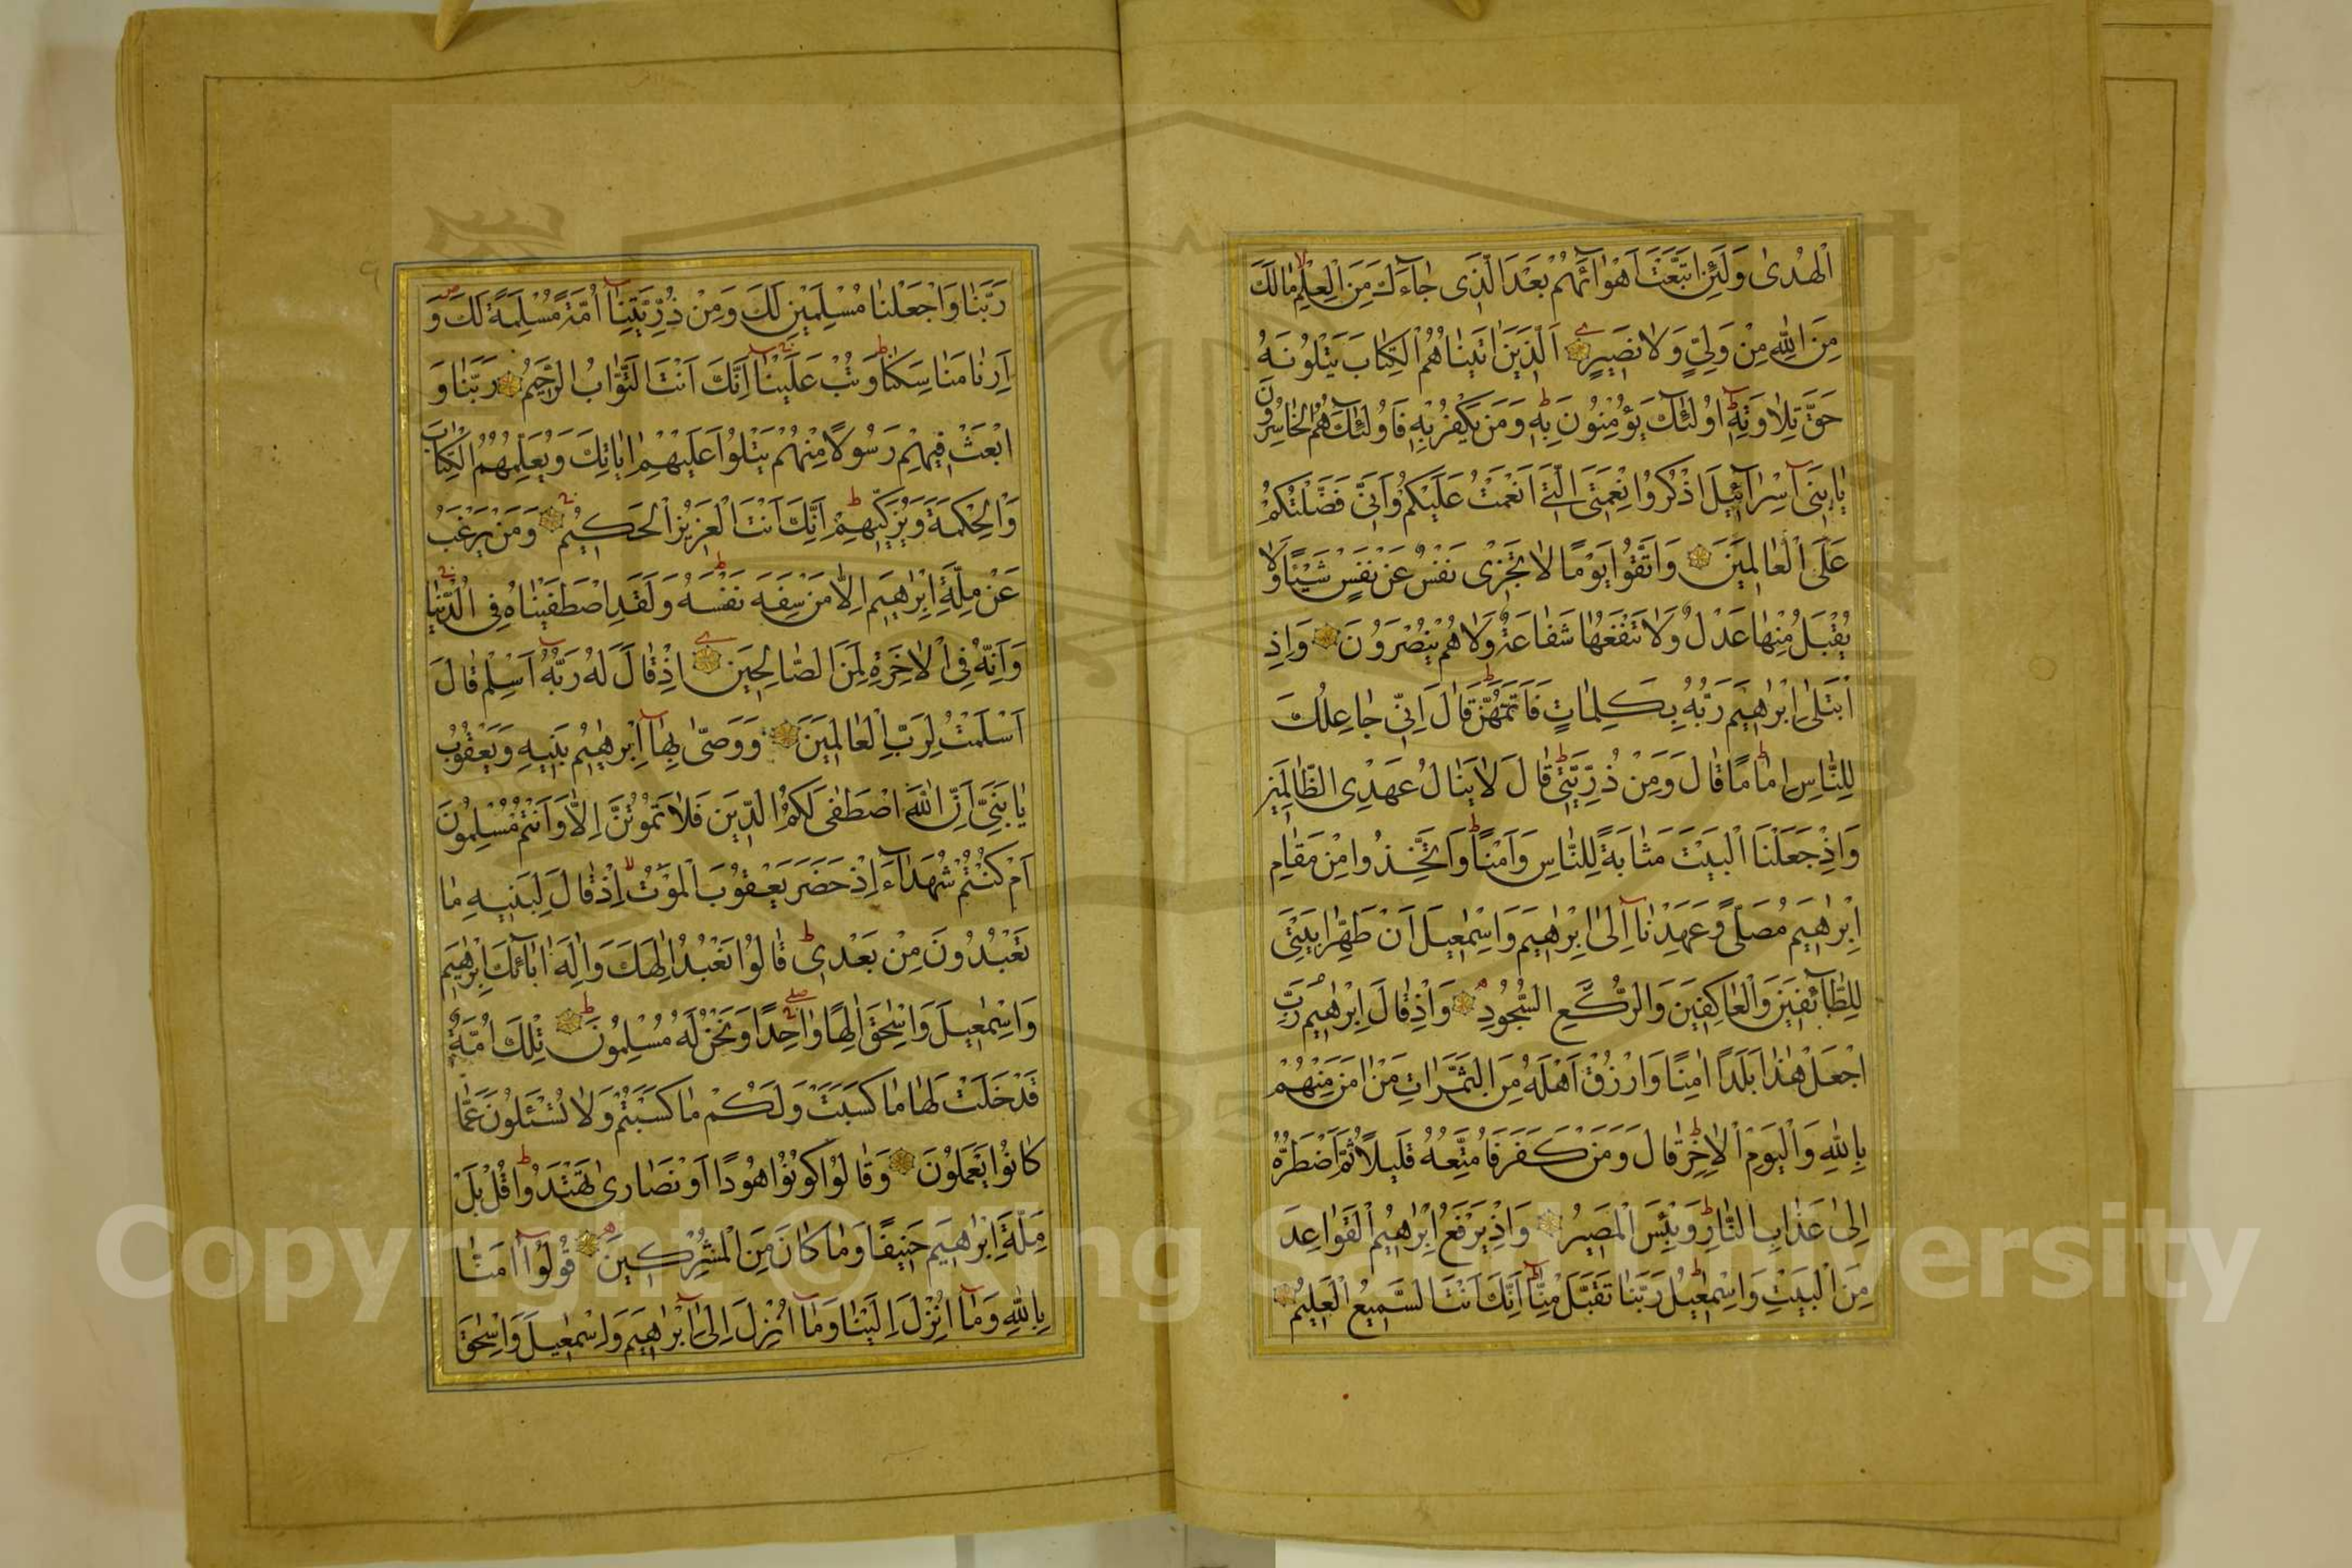 الْهُدىٰ وَلَئِنِ اتَّبَعْتَ اَهْوَآئَهُمْ بَعْدَ الَّذى جٰآءَكَ مِنَ الْعِلْمِ مٰالَكَ
مِنَ اللّٰهِ مِنْ وَلِىٍّ وَلٰا نَصيرٍ اَلَّذينَ اٰتَيْنٰاهُمُ الْكِتٰابَ يَتْلُونَهُ
حَقَّ تِلٰاوَتِهِ اُولٰئِكَ يُؤْمِنُونَ بِهِ وَمَنْ يَكْفُرْ بِهِ فَاُولٰئِكَ هُمُ الْخٰاسِرُونَ
يٰا بَنى اِسْرٰآئيلَ اذْكُرُوا نِعْمَتِىَ الَّتى اَنْعَمْتُ عَلَيْكُمْ وَاَنّى فَضَّلْتُكُمْ
عَلَى الْعٰالَمينَ وَاتَّقُوا يَوْمًا لٰا تَجْزى نَفْسٌ عَنْ نَفْسٍ شَيْئًا وَلٰا
يُقْبَلُ مِنْهٰا عَدْلٌ وَلٰا تَنْفَعُهٰا شَفٰاعَةٌ وَلٰا هُمْ يُنْصَرُونَ وَاِذِ
ابْتَلىٰ اِبْرٰهيمَ رَبُّهُ بِكَلِمٰاتٍ فَاَتَمَّهُنَّ قٰالَ اِنّى جٰاعِلُكَ
لِلنّٰاسِ اِمٰامًا قٰالَ وَمِنْ ذُرِّيَّتى قٰالَ لٰا يَنٰالُ عَهْدِى الظّٰالِمينَ
وَاِذْ جَعَلْنَا الْبَيْتَ مَثٰابَةً لِلنّٰاسِ وَاَمْنًا وَاتَّخِذُوا مِنْ مَقٰامِ
اِبْرٰهيمَ مُصَلًّى وَعَهِدْنٰا اِلىٰ اِبْرٰهيمَ وَاِسْمٰعيلَ اَنْ طَهِّرٰا بَيْتِىَ
لِلطّٰآئِفينَ وَالْعٰاكِفينَ وَالرُّكَّعِ السُّجُودِ وَاِذْ قٰالَ اِبْرٰهيمُ رَبِّ
اجْعَلْ هٰذٰا بَلَدًا اٰمِنًا وَارْزُقْ اَهْلَهُ مِنَ الثَّمَرٰاتِ مَنْ اٰمَنَ مِنْهُمْ
بِاللّٰهِ وَالْيَوْمِ الْاٰخِرِ قٰالَ وَمَنْ كَفَرَ فَاُمَتِّعُهُ قَليلًا ثُمَّ اَضْطَرُّهُ
اِلىٰ عَذٰابِ النّٰارِ وَبِئْسَ الْمَصيرُ وَاِذْ يَرْفَعُ اِبْرٰهيمُ الْقَوٰاعِدَ
مِنَ الْبَيْتِ وَاِسْمٰعيلُ رَبَّنٰا تَقَبَّلْ مِنّٰا اِنَّكَ اَنْتَ السَّميعُ الْعَليمُ
رَبَّنٰا وَاجْعَلْنٰا مُسْلِمَيْنِ لَكَ وَمِنْ ذُرِّيَّتِنٰا اُمَّةً مُسْلِمَةً لَكَ وَ
اَرِنٰا مَنٰاسِكَنٰا وَتُبْ عَلَيْنٰا اِنَّكَ اَنْتَ التَّوّٰابُ الرَّحيمُ رَبَّنٰا وَ
ابْعَثْ فيهِمْ رَسُولًا مِنْهُمْ يَتْلُوا عَلَيْهِمْ اٰيٰاتِكَ وَيُعَلِّمُهُمُ الْكِتٰابَ
وَالْحِكْمَةَ وَيُزَكّيهِمْ اِنَّكَ اَنْتَ الْعَزيزُ الْحَكيمُ وَمَنْ يَرْغَبُ
عَنْ مِلَّةِ اِبْرٰهيمَ اِلّٰا مَنْ سَفِهَ نَفْسَهُ وَلَقَدِ اصْطَفَيْنٰاهُ فِى الدُّنْيٰا
وَاِنَّهُ فِى الْاٰخِرَةِ لَمِنَ الصّٰالِحينَ اِذْ قٰالَ لَهُ رَبُّهُ اَسْلِمْ قٰالَ
اَسْلَمْتُ لِرَبِّ الْعٰالَمينَ وَوَصّىٰ بِهٰا اِبْرٰهيمُ بَنيهِ وَيَعْقُوبُ
يٰا بَنِىَّ اِنَّ اللّٰهَ اصْطَفىٰ لَكُمُ الدّينَ فَلٰا تَمُوتُنَّ اِلّٰا وَاَنْتُمْ مُسْلِمُونَ
اَمْ كُنْتُمْ شُهَدٰآءَ اِذْ حَضَرَ يَعْقُوبَ الْمَوْتُ اِذْ قٰالَ لِبَنيهِ مٰا
تَعْبُدُونَ مِنْ بَعْدى قٰالُوا نَعْبُدُ اِلٰهَكَ وَاِلٰهَ اٰبٰآئِكَ اِبْرٰهيمَ
وَاِسْمٰعيلَ وَاِسْحٰقَ اِلٰهًا وٰاحِدًا وَنَحْنُ لَهُ مُسْلِمُونَ تِلْكَ اُمَّةٌ
قَدْ خَلَتْ لَهٰا مٰا كَسَبَتْ وَلَكُمْ مٰا كَسَبْتُمْ وَلٰا تُسْئَلُونَ عَمّٰا
كٰانُوا يَعْمَلُونَ وَقٰالُوا كُونُوا هُودًا اَوْ نَصٰارىٰ تَهْتَدُوا قُلْ بَلْ
مِلَّةَ اِبْرٰهيمَ حَنيفًا وَمٰا كٰانَ مِنَ الْمُشْرِكينَ قُولُوا اٰمَنّٰا
بِاللّٰهِ وَمٰا اُنْزِلَ اِلَيْنٰا وَمٰا اُنْزِلَ اِلىٰ اِبْرٰهيمَ وَاِسْمٰعيلَ وَاِسْحٰقَ
Copyright © King Saud University